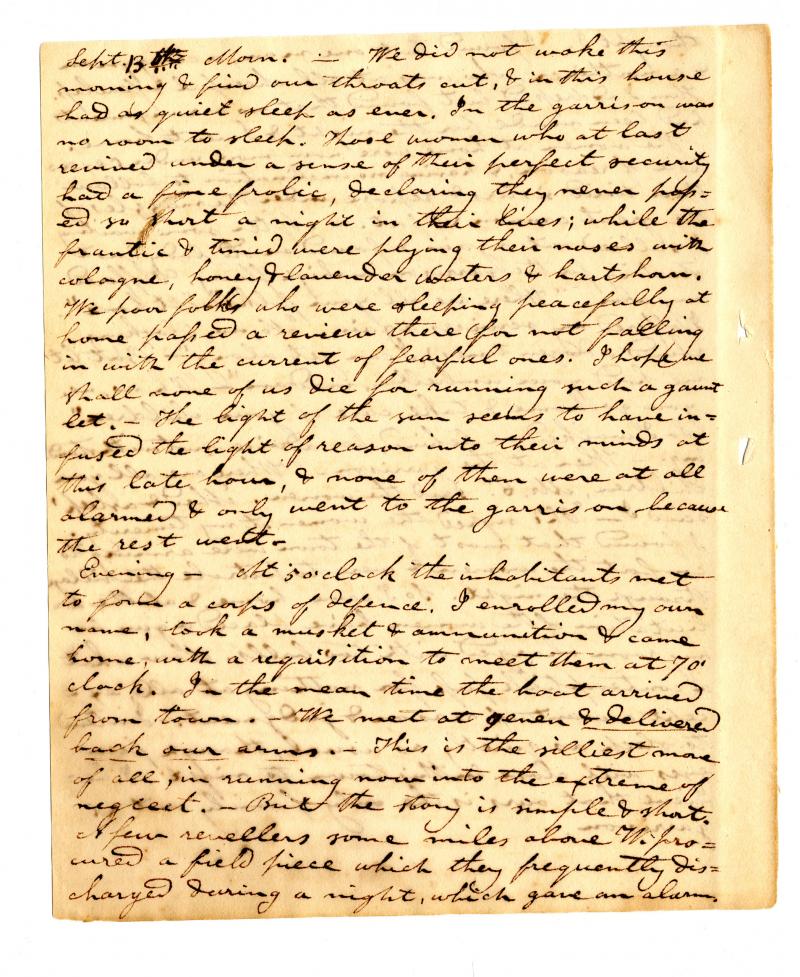 Sept. 13th Morn. — We did not wake this
morning & find our throats cut, & in this house
had as quiet sleep as ever. In the garrison was
no room to sleep. Those women who at last
revived under a sense of their perfect security
had a fine frolic, declaring they never pass=
ed so short a night in their lives; while the
frantic & timid were plying their noses with
cologne, honey & lavender waters & hartshorn.
We poor folks who were sleeping peacefully at
home passed a review there for not falling
in with the current of fearful ones. I hope we
shall none of us die for running such a gaunt
let. — The light of the sun seems to have in=
fused the light of reason into their minds at
this late hour, & none of them were at all
alarmed & only went to the garrison because
the rest went.
Evening — At 5 oclock the inhabitants met
to form a corps of defence. I enrolled my own
name, took a musket & ammunition & came
home, with a requisition to meet them at 7 o'
clock. In the mean time the boat arrived
from town. — We met at seven & delivered
back our arms. — This is the silliest move
of all, in running now into the extreme of
neglect. — But the story is simple & short.
A few revellers some miles above W. pro=
cured a field piece which they frequently dis=
charged during a night, which gave an alarm,